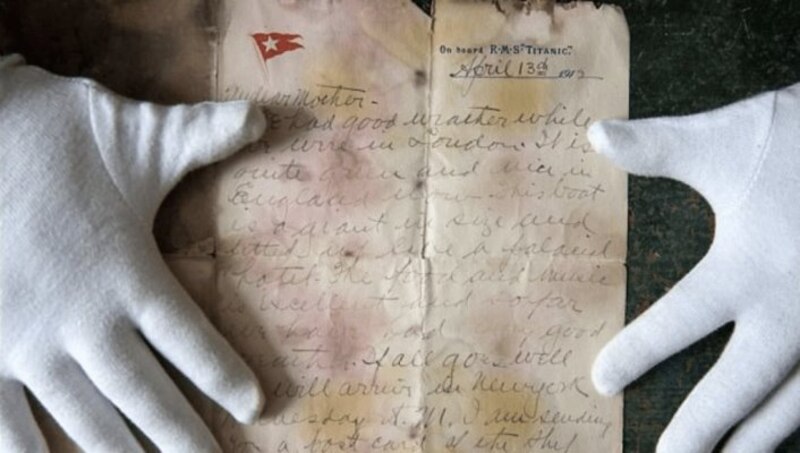 On board R·M·S "TITANIC".
April 13th 1912
My dear Mother-
had good weather while
were in London. It is
quite green and nice in
England now. This boat
is a giant in size and
fitted up like a palacial
hotel. The food and music
is excellent and so far
we have had very good
weather. If all goes well
will arrive in New york
Wednesday A.M. I am sending
you a post card of the ship